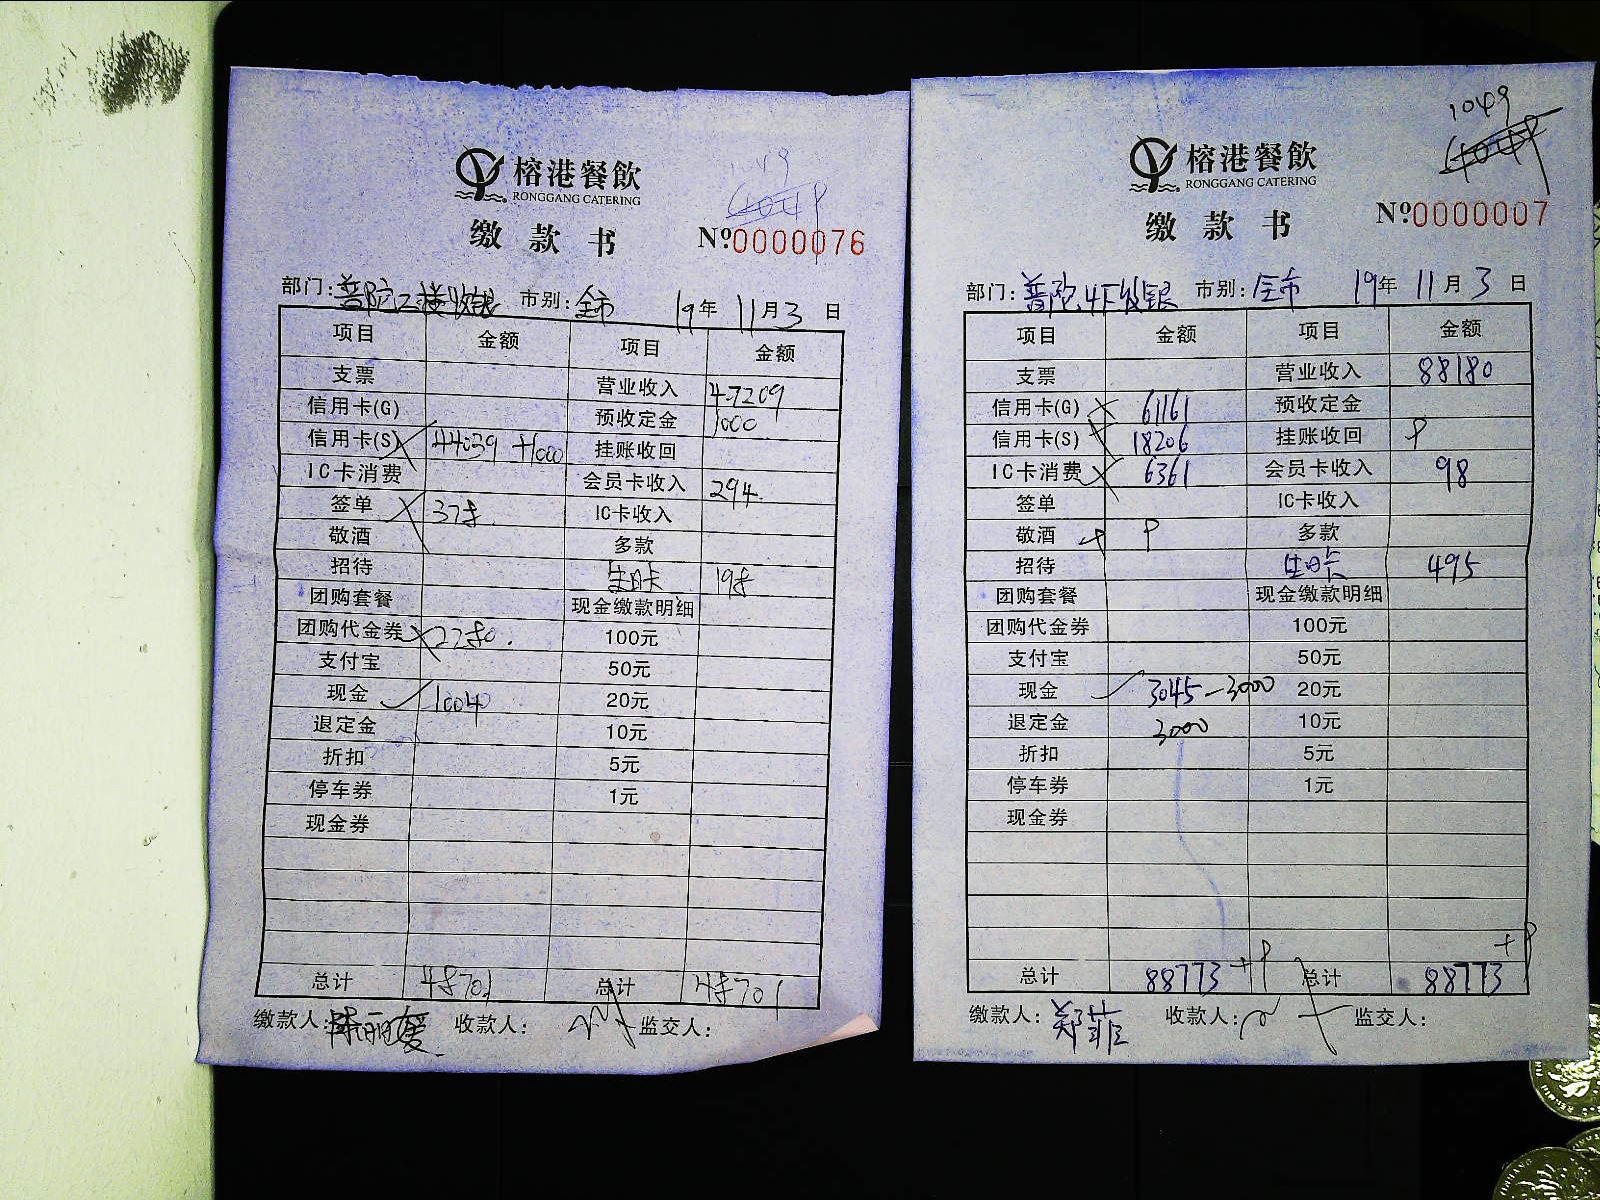 1049
榕港餐飲
RONGGANG CATERING
缴款书
№0000076
部门:普陀二楼收银 市别:全市 19年11月3日
项目 金额 项目 金额
支票 营业收入 47209
信用卡(G) 预收定金 1000
信用卡(S) 44039 +1000 挂账收回
IC卡消费 会员卡收入 294
签单 378. IC卡收入
敬酒 多款
招待 生日卡 198
团购套餐 现金缴款明细
团购代金券 2280. 100元
支付宝 50元
现金 1004 20元
退定金 10元
折扣 5元
停车券 1元
现金券
总计 48701 总计 48701
缴款人: 收款人: 监交人:
1049
榕港餐飲
RONGGANG CATERING
缴款书
№0000007
部门:普陀4F收银 市别:全市 19年11月3日
项目 金额 项目 金额
支票 营业收入 88180
信用卡(G) 61161 预收定金
信用卡(S) 18206 挂账收回
IC卡消费 6361 会员卡收入 98
签单 IC卡收入
敬酒 多款
招待 生日卡 495
团购套餐 现金缴款明细
团购代金券 100元
支付宝 50元
现金 3045-3000 20元
退定金 3000 10元
折扣 5元
停车券 1元
现金券
总计 88773 总计 88773
缴款人:郑菲 收款人: 监交人: